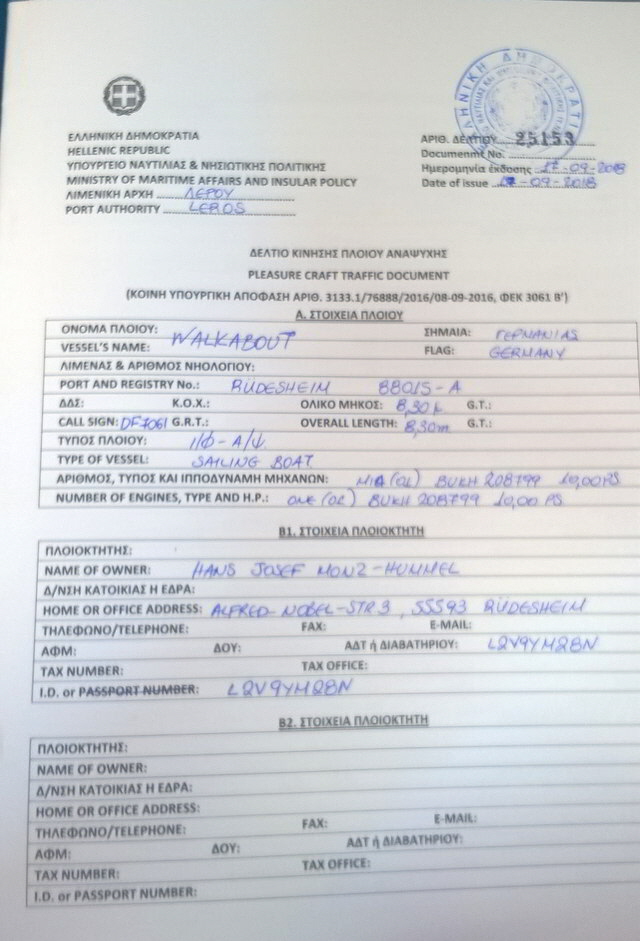 ΕΛΛΗΝΙΚΗ ΔΗΜΟΚΡΑΤΙΑ
HELLENIC REPUBLIC
ΥΠΟΥΡΓΕΙΟ ΝΑΥΤΙΛΙΑΣ & ΝΗΣΙΩΤΙΚΗΣ ΠΟΛΙΤΙΚΗΣ
MINISTRY OF MARITIME AFFAIRS AND INSULAR POLICY
ΛΙΜΕΝΙΚΗ ΑΡΧΗ ΛΕΡΟΥ
PORT AUTHORITY LEROS
ΑΡΙΘ. ΔΕΛΤΙΟΥ 25153
Documenmt No.
Ημερομηνία έκδοσης 27-09-2018
Date of issue -09-2018
ΔΕΛΤΙΟ ΚΙΝΗΣΗΣ ΠΛΟΙΟΥ ΑΝΑΨΥΧΗΣ
PLEASURE CRAFT TRAFFIC DOCUMENT
(ΚΟΙΝΗ ΥΠΟΥΡΓΙΚΗ ΑΠΟΦΑΣΗ ΑΡΙΘ. 3133.1/76888/2016/08-09-2016, ΦΕΚ 3061 Β')
Α. ΣΤΟΙΧΕΙΑ ΠΛΟΙΟΥ
ΟΝΟΜΑ ΠΛΟΙΟΥ: ΣΗΜΑΙΑ: ΓΕΡΜΑΝΙΑΣ
VESSEL'S NAME: WALKABOUT FLAG: GERMANY
ΛΙΜΕΝΑΣ & ΑΡΙΘΜΟΣ ΝΗΟΛΟΓΙΟΥ:
PORT AND REGISTRY No.: RÜDESHEIM 88015-A
ΔΔΣ: Κ.Ο.Χ.: ΟΛΙΚΟ ΜΗΚΟΣ: 8,30μ G.T.:
CALL SIGN: DF7061 G.R.T.: OVERALL LENGTH: 8,30m G.T.:
ΤΥΠΟΣ ΠΛΟΙΟΥ: Ι/Φ-Α/Ψ
TYPE OF VESSEL: SAILING BOAT
ΑΡΙΘΜΟΣ, ΤΥΠΟΣ ΚΑΙ ΙΠΠΟΔΥΝΑΜΗ ΜΗΧΑΝΩΝ: ΜΙΑ (01) BUKH 208799 10,00 PS
NUMBER OF ENGINES, TYPE AND H.P.: ONE (01) BUKH 208799 10,00 PS
Β1. ΣΤΟΙΧΕΙΑ ΠΛΟΙΟΚΤΗΤΗ
ΠΛΟΙΟΚΤΗΤΗΣ:
NAME OF OWNER: HANS JOSEF MONZ-HUMMEL
Δ/ΝΣΗ ΚΑΤΟΙΚΙΑΣ Η ΕΔΡΑ:
HOME OR OFFICE ADDRESS: ALFRED-NOBEL-STR 3, 55593 RÜDESHEIM
ΤΗΛΕΦΩΝΟ/TELEPHONE: FAX: E-MAIL:
ΑΦΜ: ΔΟΥ: ΑΔΤ ή ΔΙΑΒΑΤΗΡΙΟΥ: L2V9YM28N
TAX NUMBER: TAX OFFICE:
I.D. or PASSPORT NUMBER: L2V9YM28N
Β2. ΣΤΟΙΧΕΙΑ ΠΛΟΙΟΚΤΗΤΗ
ΠΛΟΙΟΚΤΗΤΗΣ:
NAME OF OWNER:
Δ/ΝΣΗ ΚΑΤΟΙΚΙΑΣ Η ΕΔΡΑ:
HOME OR OFFICE ADDRESS:
ΤΗΛΕΦΩΝΟ/TELEPHONE: FAX: E-MAIL:
ΑΦΜ: ΔΟΥ: ΑΔΤ ή ΔΙΑΒΑΤΗΡΙΟΥ:
TAX NUMBER: TAX OFFICE:
I.D. or PASSPORT NUMBER: